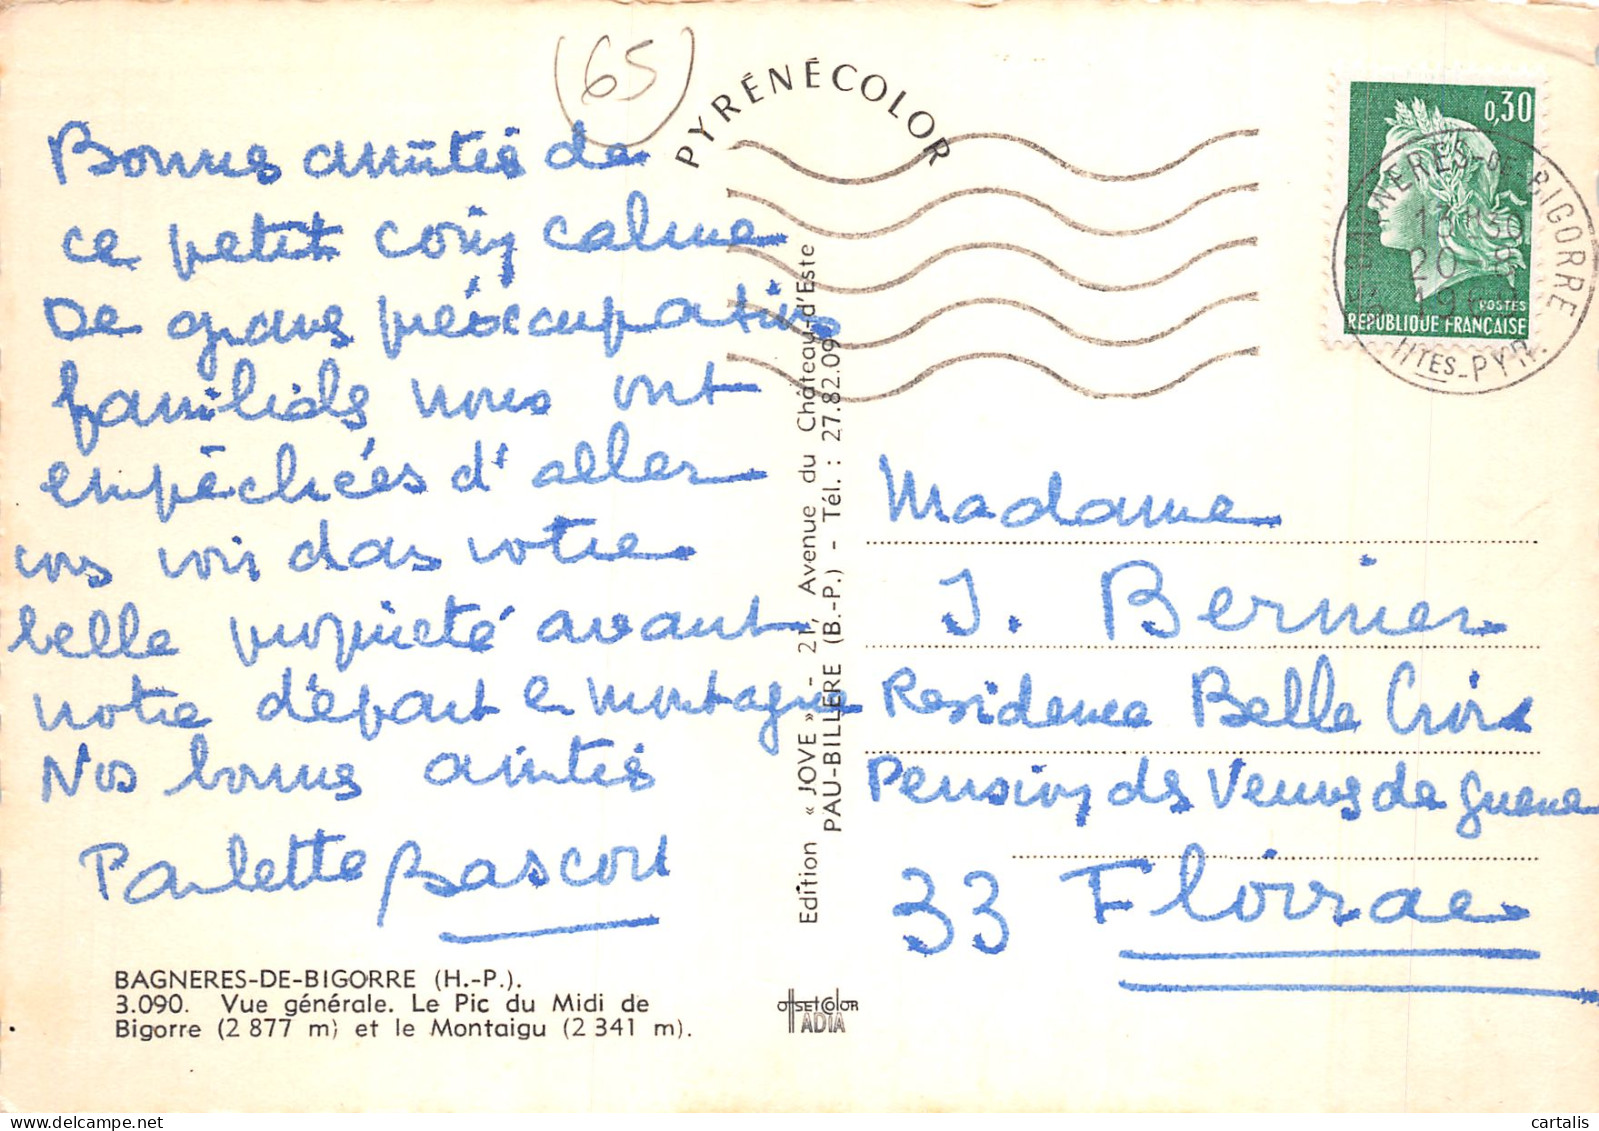 (65)
PYRÉNÉCOLOR
Bonnes amitiés de
ce petit coin calme
De graves préoccupations
familiales nous ont
empêchées d'aller
vous voir dans votre
belle propriété avant
notre départ en montagne
Nos bonnes amitiés
Paulette Bascou
BAGNERES-DE-BIGORRE (H.-P.).
3.090. Vue générale. Le Pic du Midi de
Bigorre (2 877 m) et le Montaigu (2 341 m).
Edition « JOVE » - 21, Avenue du Château-d'Este
PAU-BILLÈRE (B.-P.) - Tél. : 27.82.09
OFFSET COLOR
IADIA
0,30
POSTES
RÉPUBLIQUE FRANÇAISE
BAGNERES-DE-BIGORRE
13H30
20
19
HTES-PYR.
Madame
J. Bernier
Residence Belle Croix
Pension des Veuves de guerre
33 Floirac
cartalis